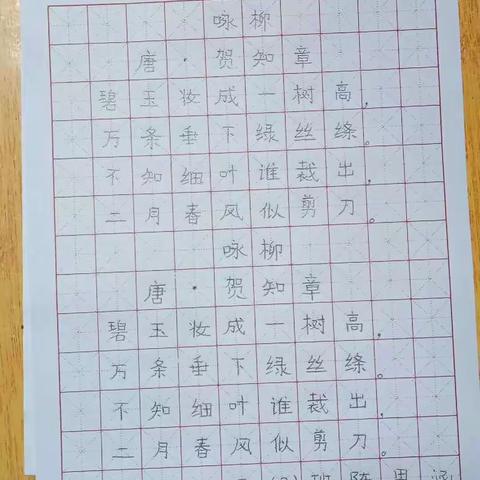 咏柳
唐·贺知章
碧玉妆成一树高，
万条垂下绿丝绦。
不知细叶谁裁出，
二月春风似剪刀。
咏柳
唐·贺知章
碧玉妆成一树高，
万条垂下绿丝绦。
不知细叶谁裁出，
二月春风似剪刀。
班陈思涵